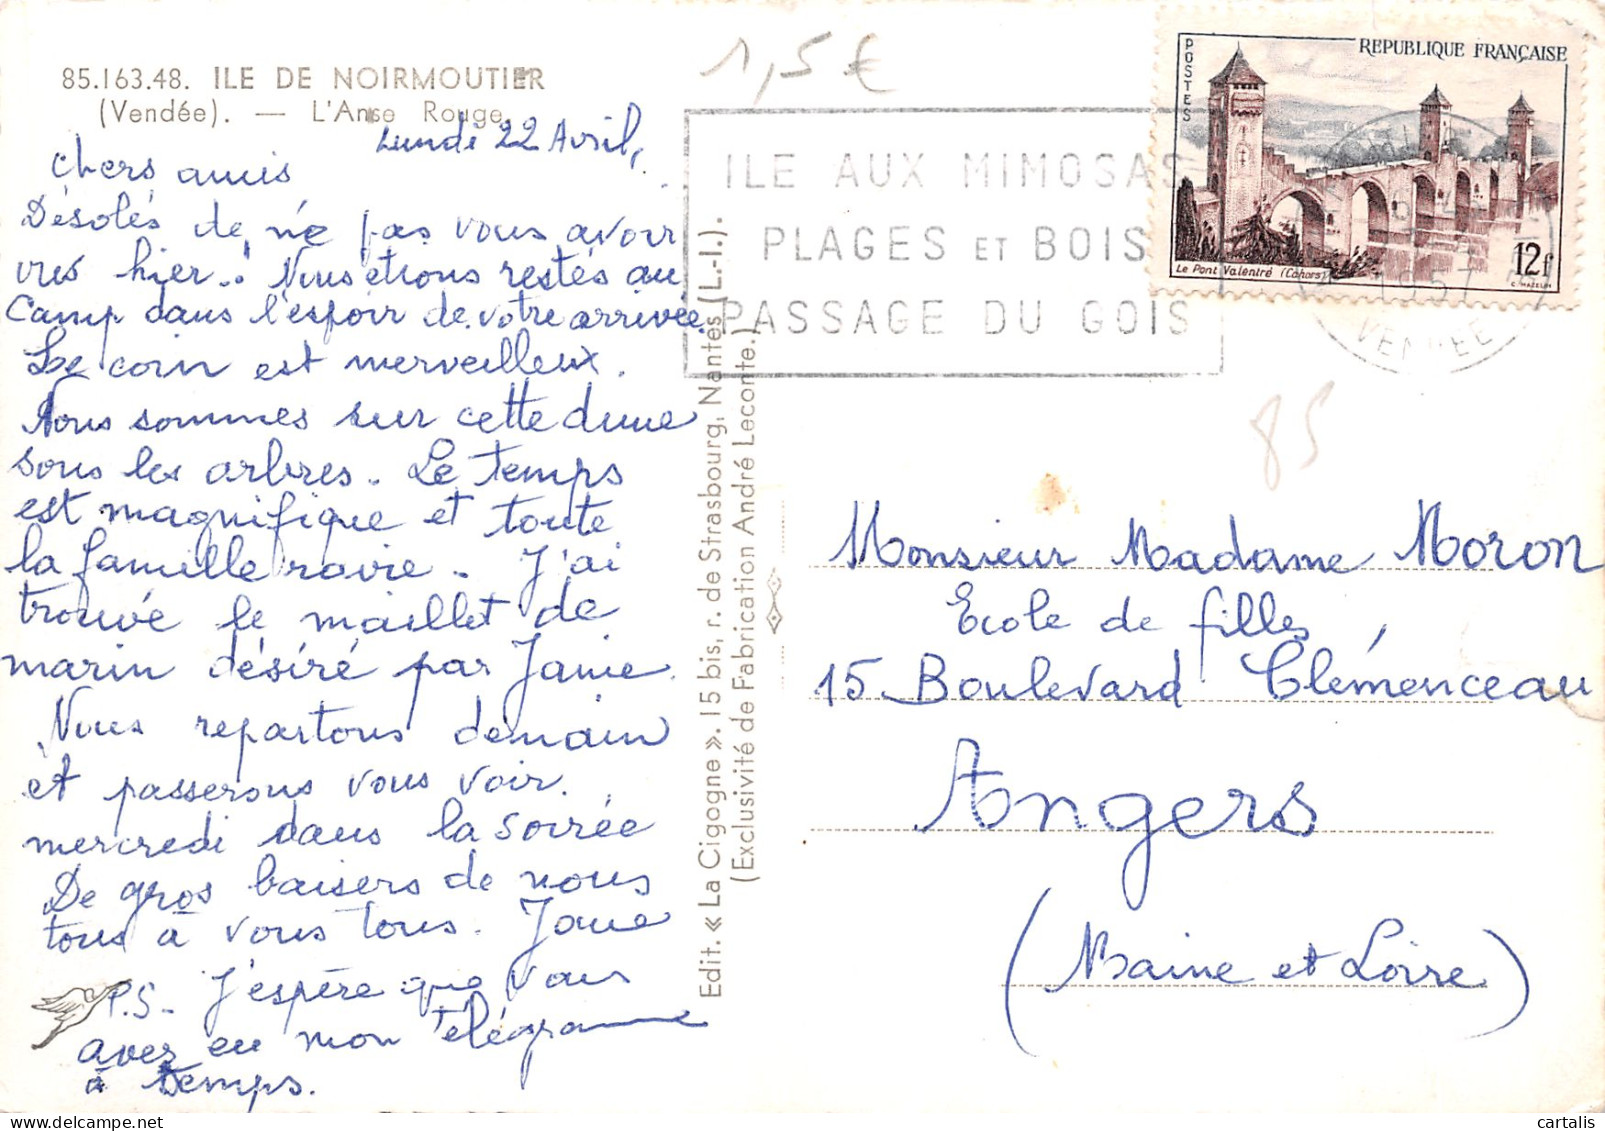 85.163.48. ILE DE NOIRMOUTIER
(Vendée). — L'Anse Rouge.
Lundi 22 Avril,
Chers amis
Désolés de ne pas vous avoir
vus hier.. Nous étions restés au
Camp dans l'espoir de votre arrivée.
Le coin est merveilleux.
Nous sommes sur cette dune
sous les arbres. Le temps
est magnifique et toute
la famille ravie. J'ai
trouvé le maillot de
marin désiré par Janie.
Nous repartons demain
et passerons vous voir.
mercredi dans la soirée
De gros baisers de nous
tous à vous tous.
P.S. J'espère que vous
avez eu mon télégramme
à temps.
Edit. « La Cigogne ». 15 bis, r. de Strasbourg, Nantes (L.-I.).
(Exclusivité de Fabrication André Leconte.)
1,5 €
ILE AUX MIMOSAS
PLAGES ET BOIS
PASSAGE DU GOIS
POSTES
REPUBLIQUE FRANÇAISE
Le Pont Valentré (Cahors)
12f
C. MAZELIN
1957
VENDEE
85
Monsieur Madame Moron
Ecole de filles
15 Boulevard Clémenceau
Angers
(Maine et Loire)
cartalis